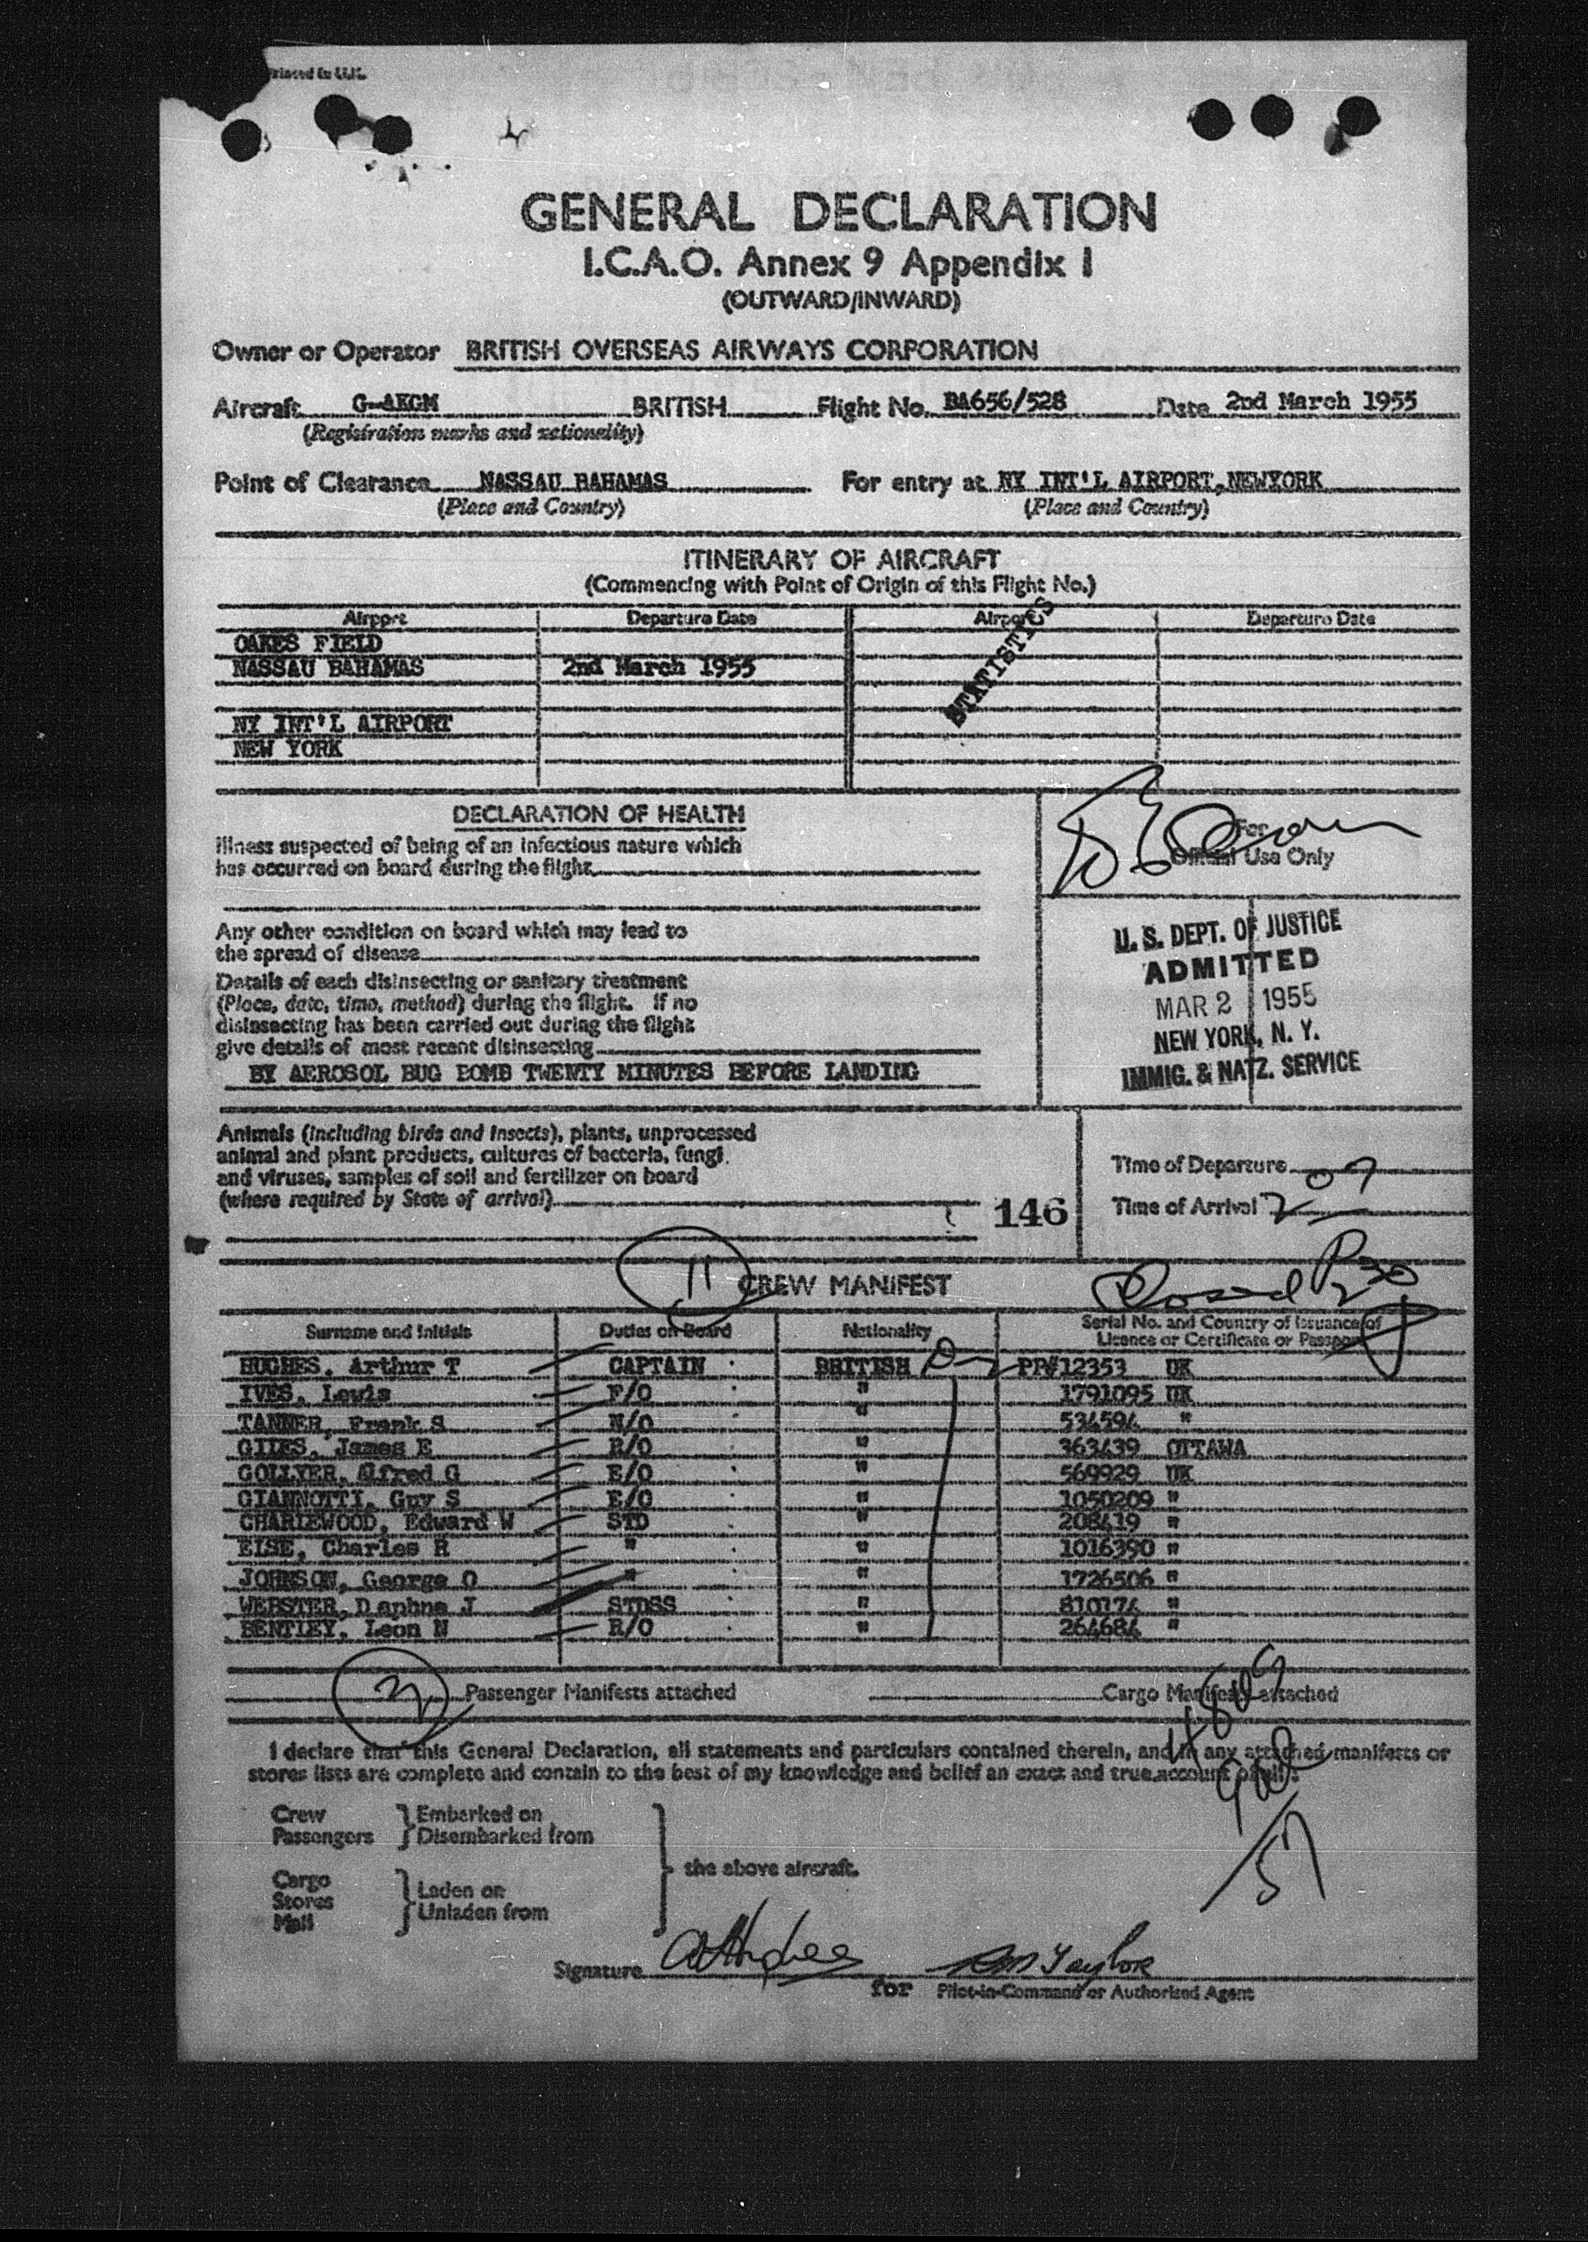 Printed in U.K.
GENERAL DECLARATION
I.C.A.O. Annex 9 Appendix I
(OUTWARD/INWARD)
Owner or Operator BRITISH OVERSEAS AIRWAYS CORPORATION
Aircraft G-AKGM BRITISH Flight No. BA656/528 Date 2nd March 1955
(Registration marks and nationality)
Point of Clearance NASSAU BAHAMAS For entry at NY INT'L AIRPORT, NEWYORK
(Place and Country) (Place and Country)
ITINERARY OF AIRCRAFT
(Commencing with Point of Origin of this Flight No.)
Airport Departure Date Airport Departure Date
OAKES FIELD
NASSAU BAHAMAS 2nd March 1955
STATISTICS
NY INT'L AIRPORT
NEW YORK
DECLARATION OF HEALTH
Illness suspected of being of an infectious nature which
has occurred on board during the flight
For
Official Use Only
Any other condition on board which may lead to
the spread of disease
Details of each disinsecting or sanitary treatment
(Place, date, time, method) during the flight. If no
disinsecting has been carried out during the flight
give details of most recent disinsecting
BY AEROSOL BUG BOMB TWENTY MINUTES BEFORE LANDING
U. S. DEPT. OF JUSTICE
ADMITTED
MAR 2 1955
NEW YORK, N. Y.
IMMIG. & NATZ. SERVICE
Animals (including birds and insects), plants, unprocessed
animal and plant products, cultures of bacteria, fungi
and viruses, samples of soil and fertilizer on board
(where required by State of arrival)
146
Time of Departure
Time of Arrival 207
11 CREW MANIFEST
Surname and Initials Duties on Board Nationality Serial No. and Country of Issuance of
Licence or Certificate or Passport
HUGHES, Arthur T CAPTAIN BRITISH PP#12353 UK
IVES, Lewis F/O " 1791095 UK
TANNER, Frank S N/O " 534594 "
GILES, James E R/O " 363439 OTTAWA
GOLLYER, Alfred G E/O " 569929 UK
GIANNOTTI, Guy S E/O " 1050209 "
CHARLEWOOD, Edward W STD " 208419 "
ELSE, Charles R " " 1016390 "
JOHNSON, George O " " 1726506 "
WEBSTER, Daphne J STDSS " 810174 "
BENTLEY, Leon N R/O " 264684 "
Passenger Manifests attached Cargo Manifests attached
I declare that this General Declaration, all statements and particulars contained therein, and in any attached manifests or
stores lists are complete and contain to the best of my knowledge and belief an exact and true account of all:
Crew Embarked on
Passengers Disembarked from
the above aircraft.
Cargo Laden on
Stores Unladen from
Mail
57
Signature ATHughes for RM Taylor
Pilot-in-Command or Authorized Agent